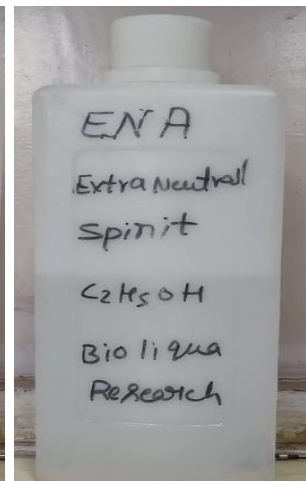 ENA
Extra Neutrall
Spirit
C2H5OH
Bioliqua
Research